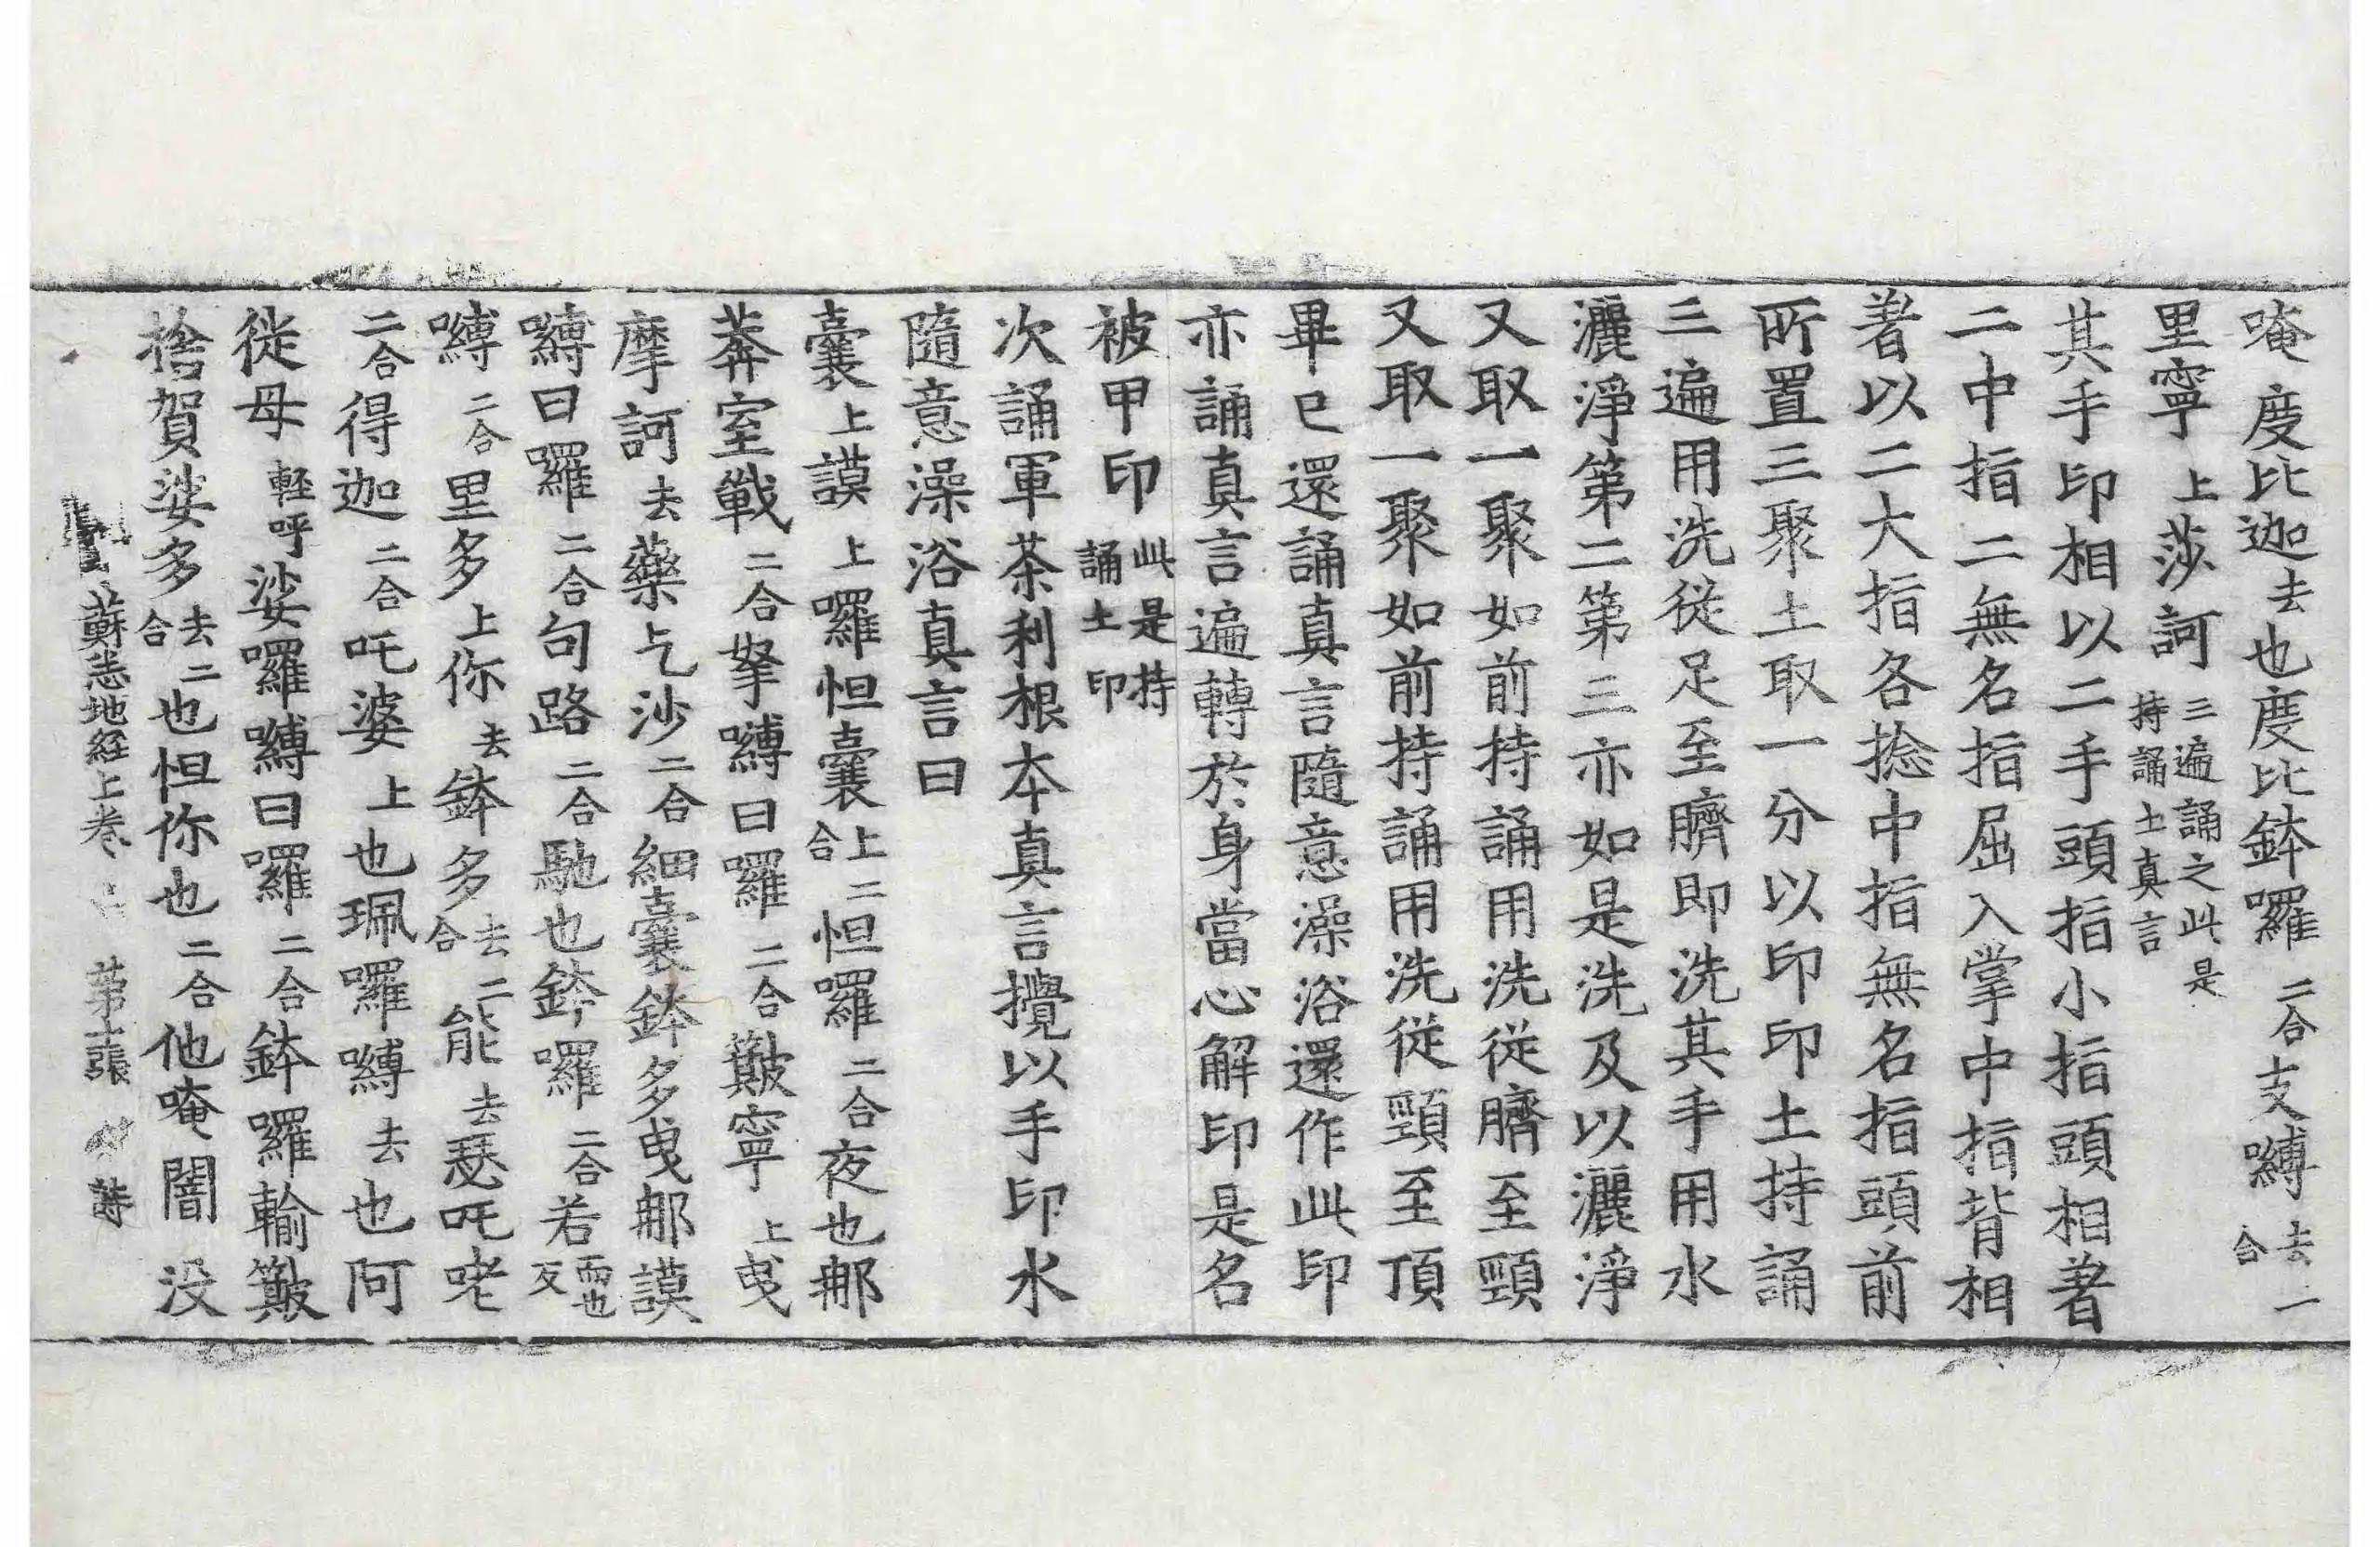 唵度比迦去也度比鉢囉二合支嚩去一合
里寧上莎訶三遍誦之此是持誦土真言
其手印相以二手頭指小指頭相著
二中指二無名指屈入掌中指背相
著以二大指各捻中指無名指頭前
所置三聚土取一分以印印土持誦
三遍用洗從足至臍即洗其手用水
灑淨第二第三亦如是洗及以灑淨
又取一聚如前持誦用洗從臍至頸
又取一聚如前持誦用洗從頸至頂
畢已還誦真言隨意澡浴還作此印
亦誦真言遍轉於身當心解印是名
被甲印此是持誦土印
次誦軍荼利根本真言攪以手印水
隨意澡浴真言曰
曩上謨上囉怛曩上二合怛囉二合夜也那
莽室戰二合拏嚩曰囉二合簸寧上曳
摩訶去藥乞沙二合細曩鉢多曳那謨
嚩曰囉二合句路二合馱也鉢囉二合若而也反
嚩二合里多上你去鉢多去二合能去瑟吒咾
二合得迦二合吒婆上也珮囉嚩去也阿
徙母輕呼娑囉嚩曰囉二合鉢囉輸簸
捨賀娑多去二合也怛你也二合他唵闇没
蘇悉地經上卷 第十張